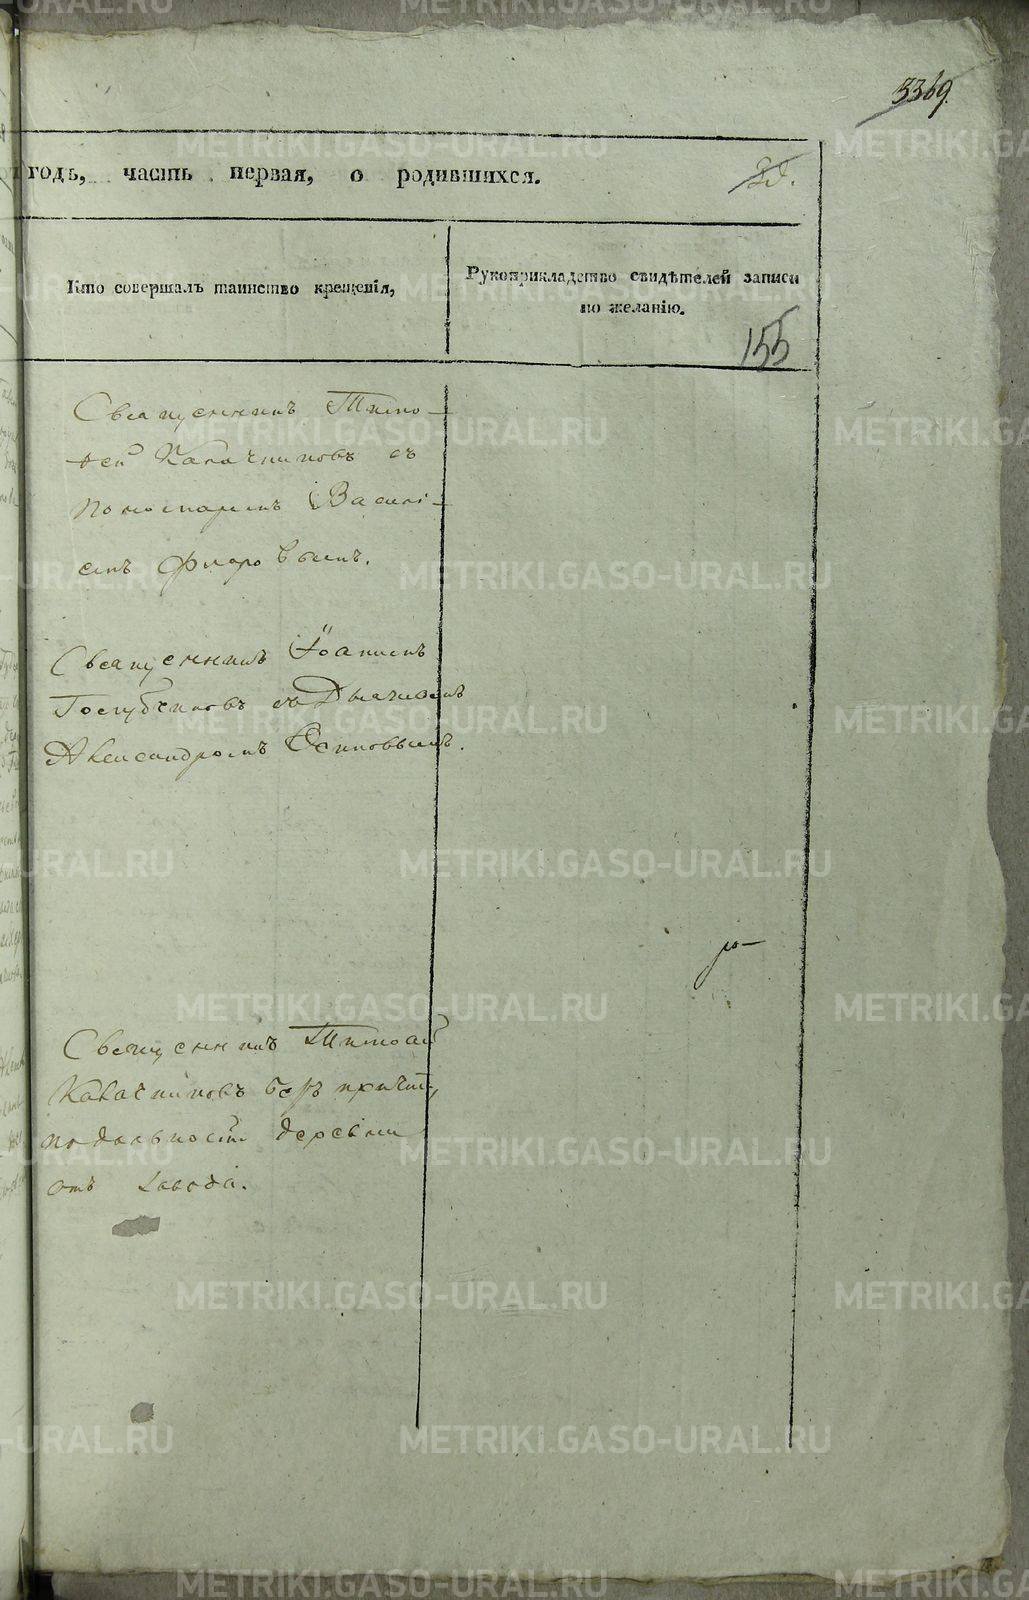 3369.
годъ, часть первая, о родившихся.
Кто совершалъ таинство крещенія,
Рукоприкладство свидѣтелей записи
по желанію.
155
Священникъ Тимо-
ѳей Калачниковъ съ
Пономаремъ Василі-
емъ Флоровымъ.
Священникъ Іоаннъ
Голубчиковъ съ Дьячкомъ
Александромъ Осиповымъ.
Священникъ Тимоѳей
Калачниковъ безъ причта,
по дальности деревни
отъ завода.
METRIKI.GASO-URAL.RU